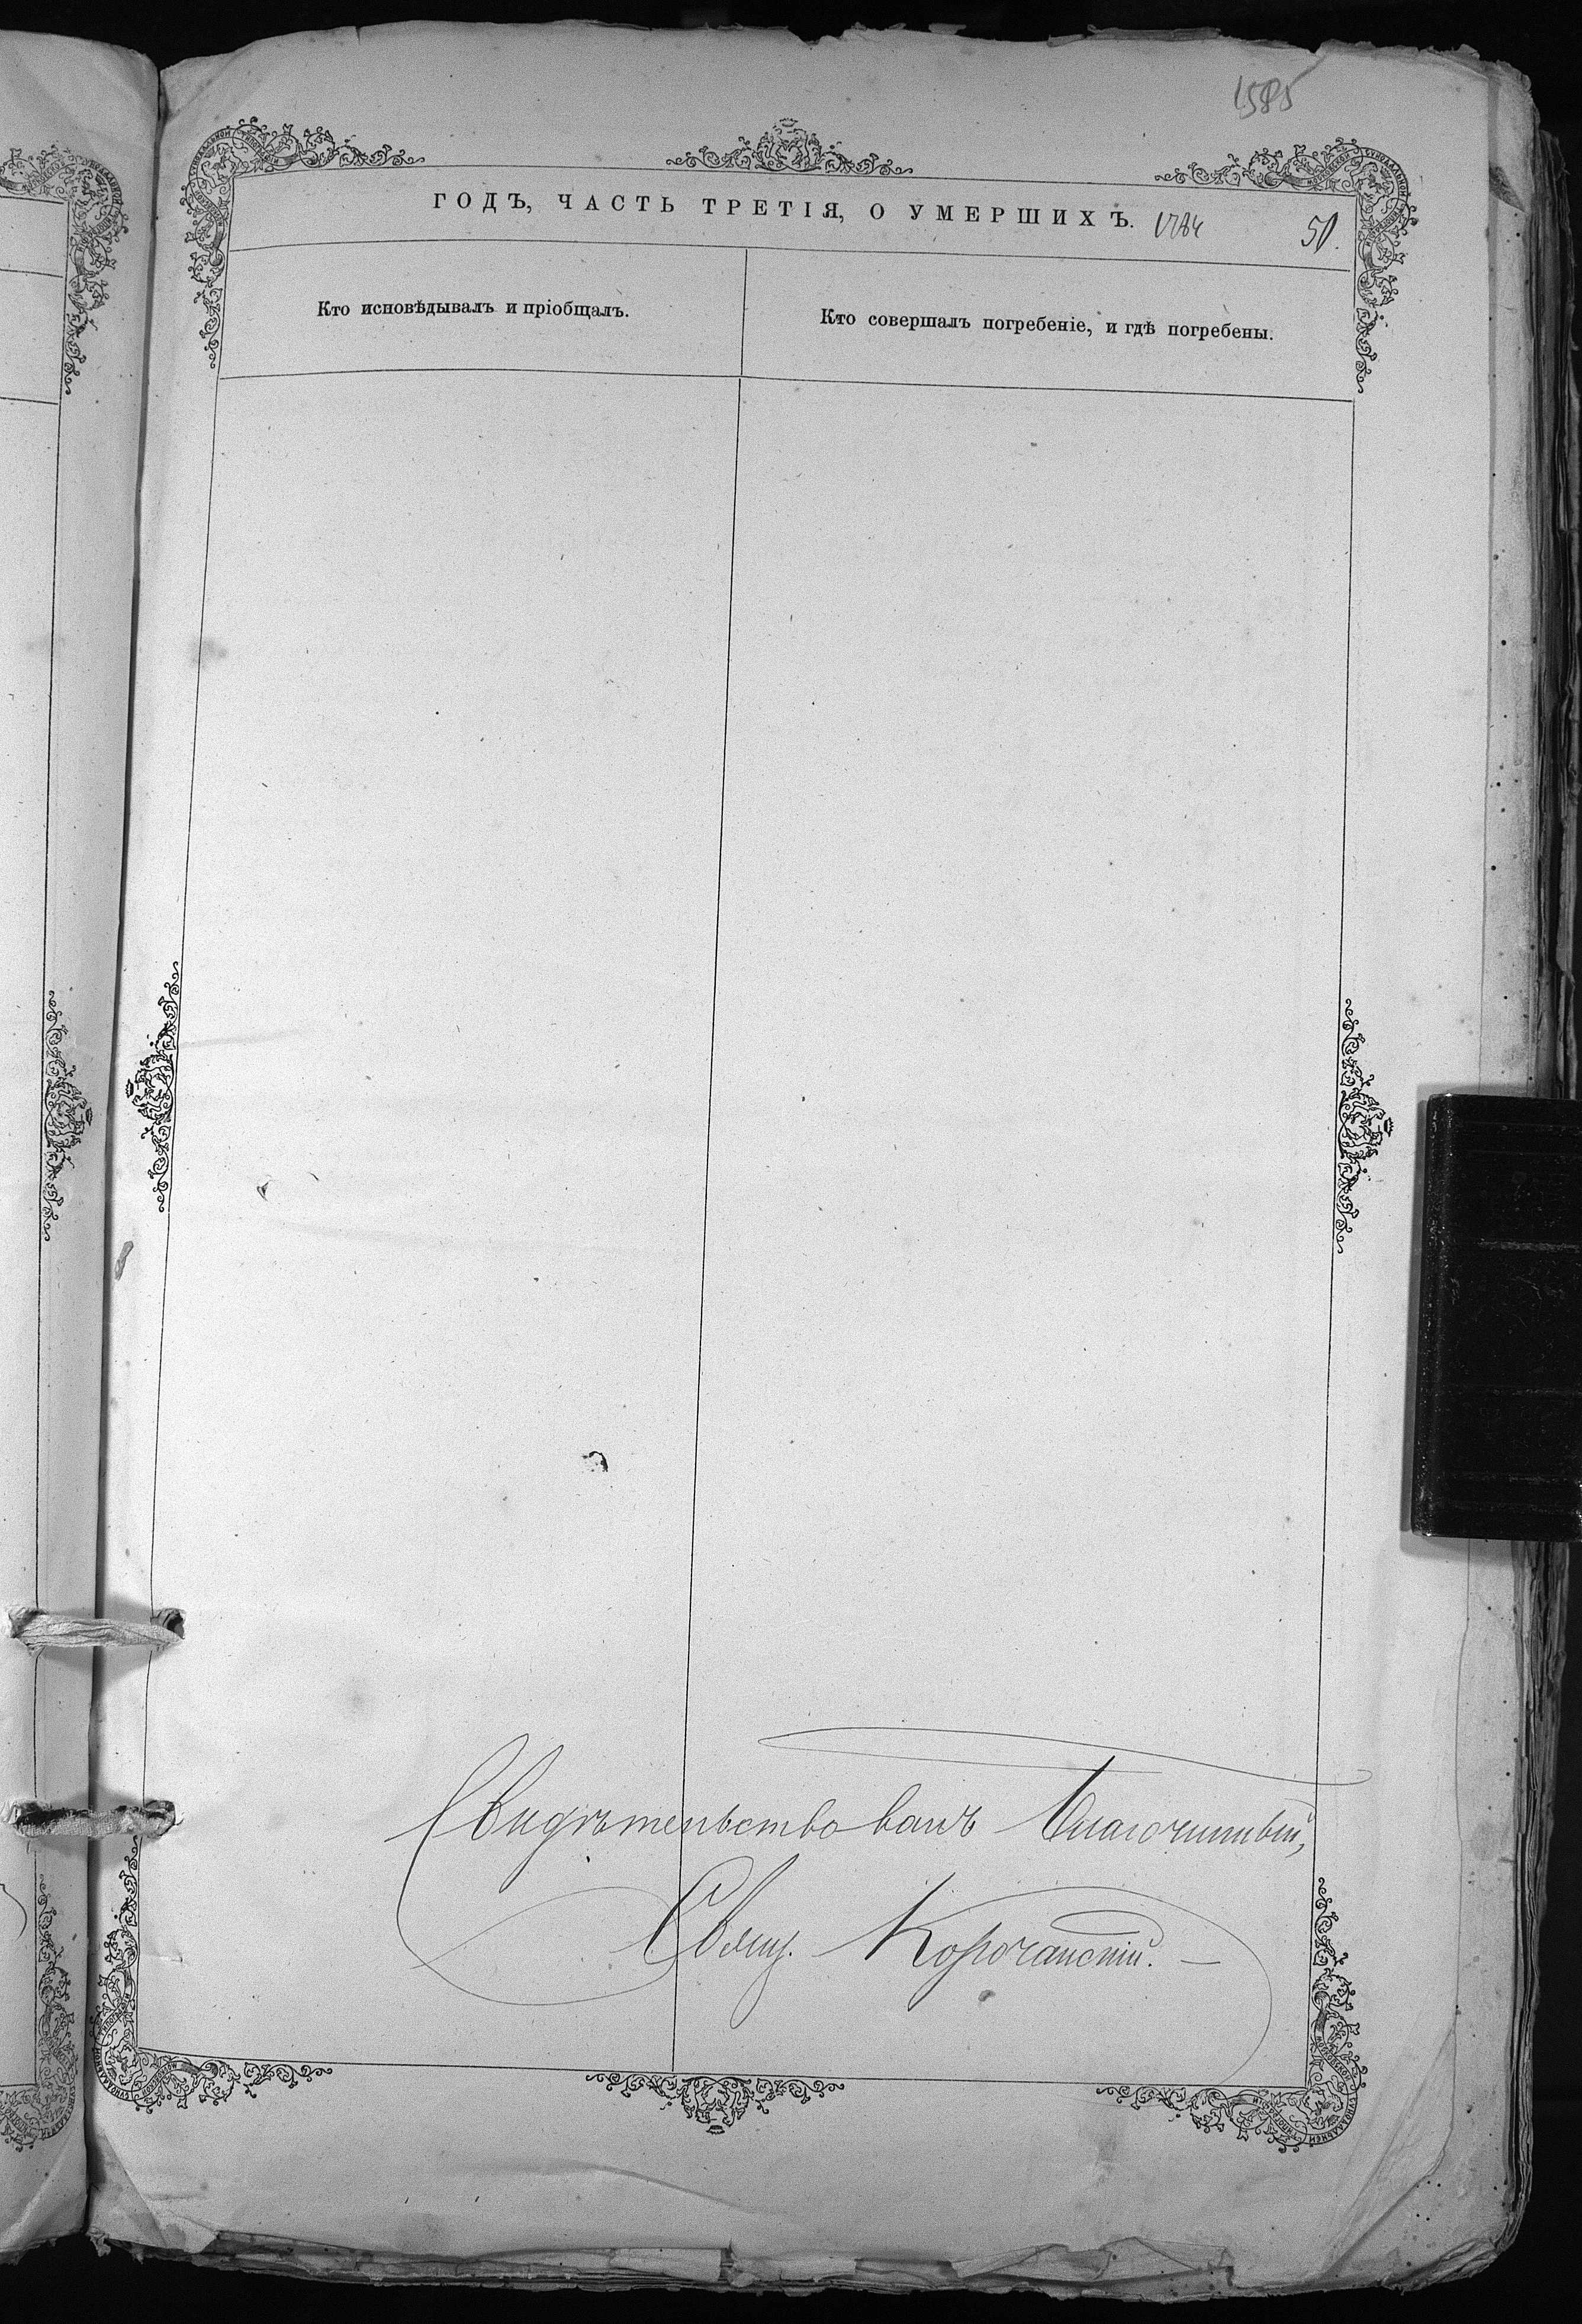 1585
ГОДЪ, ЧАСТЬ ТРЕТІЯ, О УМЕРШИХЪ.
50.
Кто исповѣдывалъ и пріобщалъ.
Кто совершалъ погребеніе, и гдѣ погребены.
Свидѣтельствовалъ Благочинный,
Свящ. Корочанскій. —